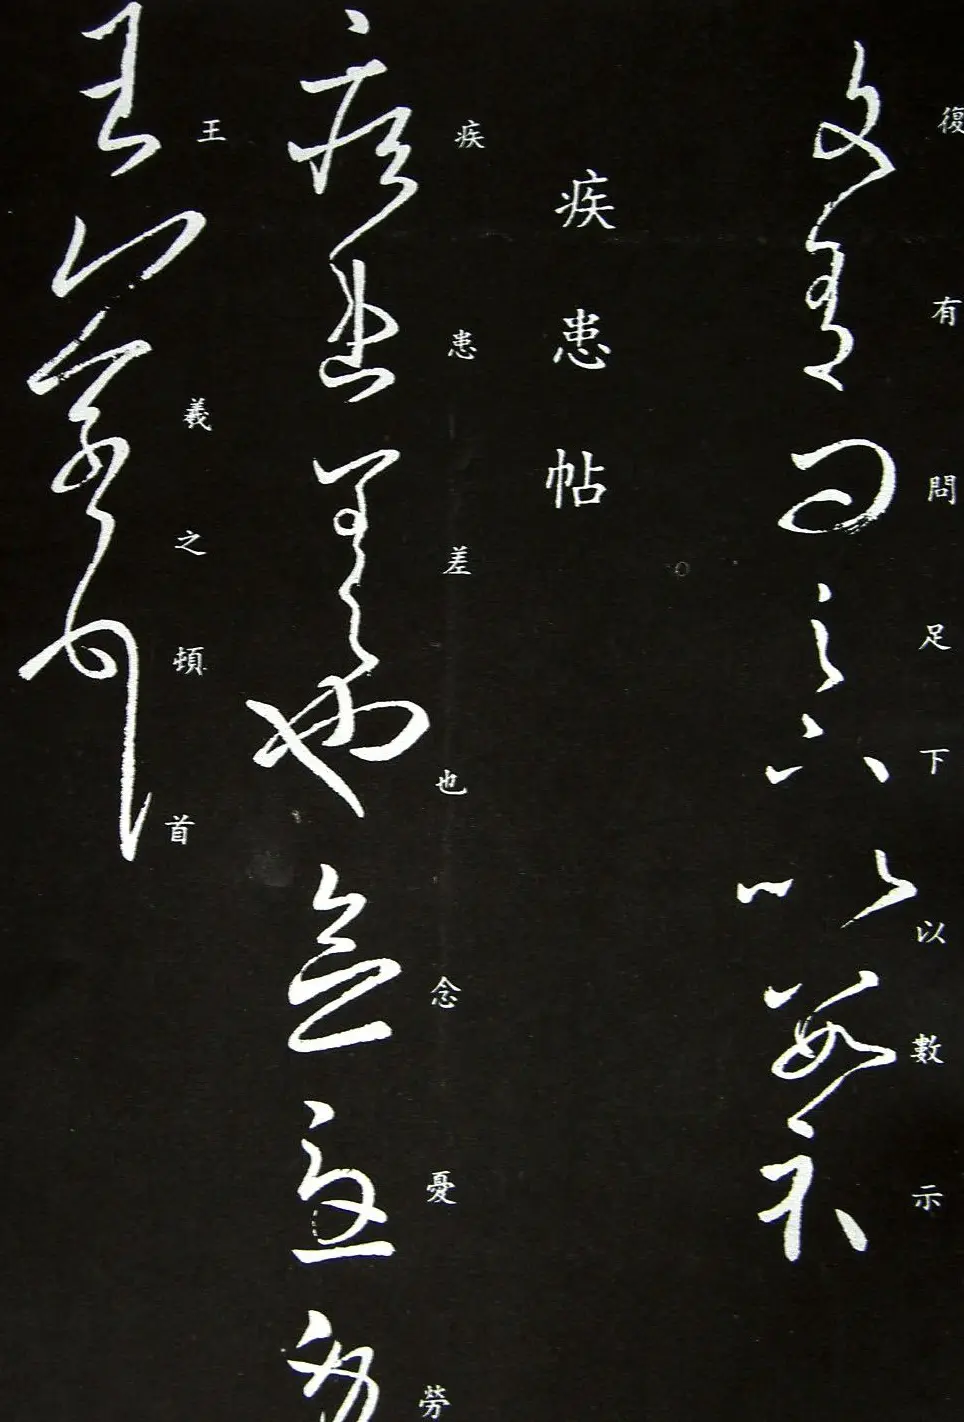 復有問足下以數示
疾患帖
疾患差也念憂勞
王羲之頓首